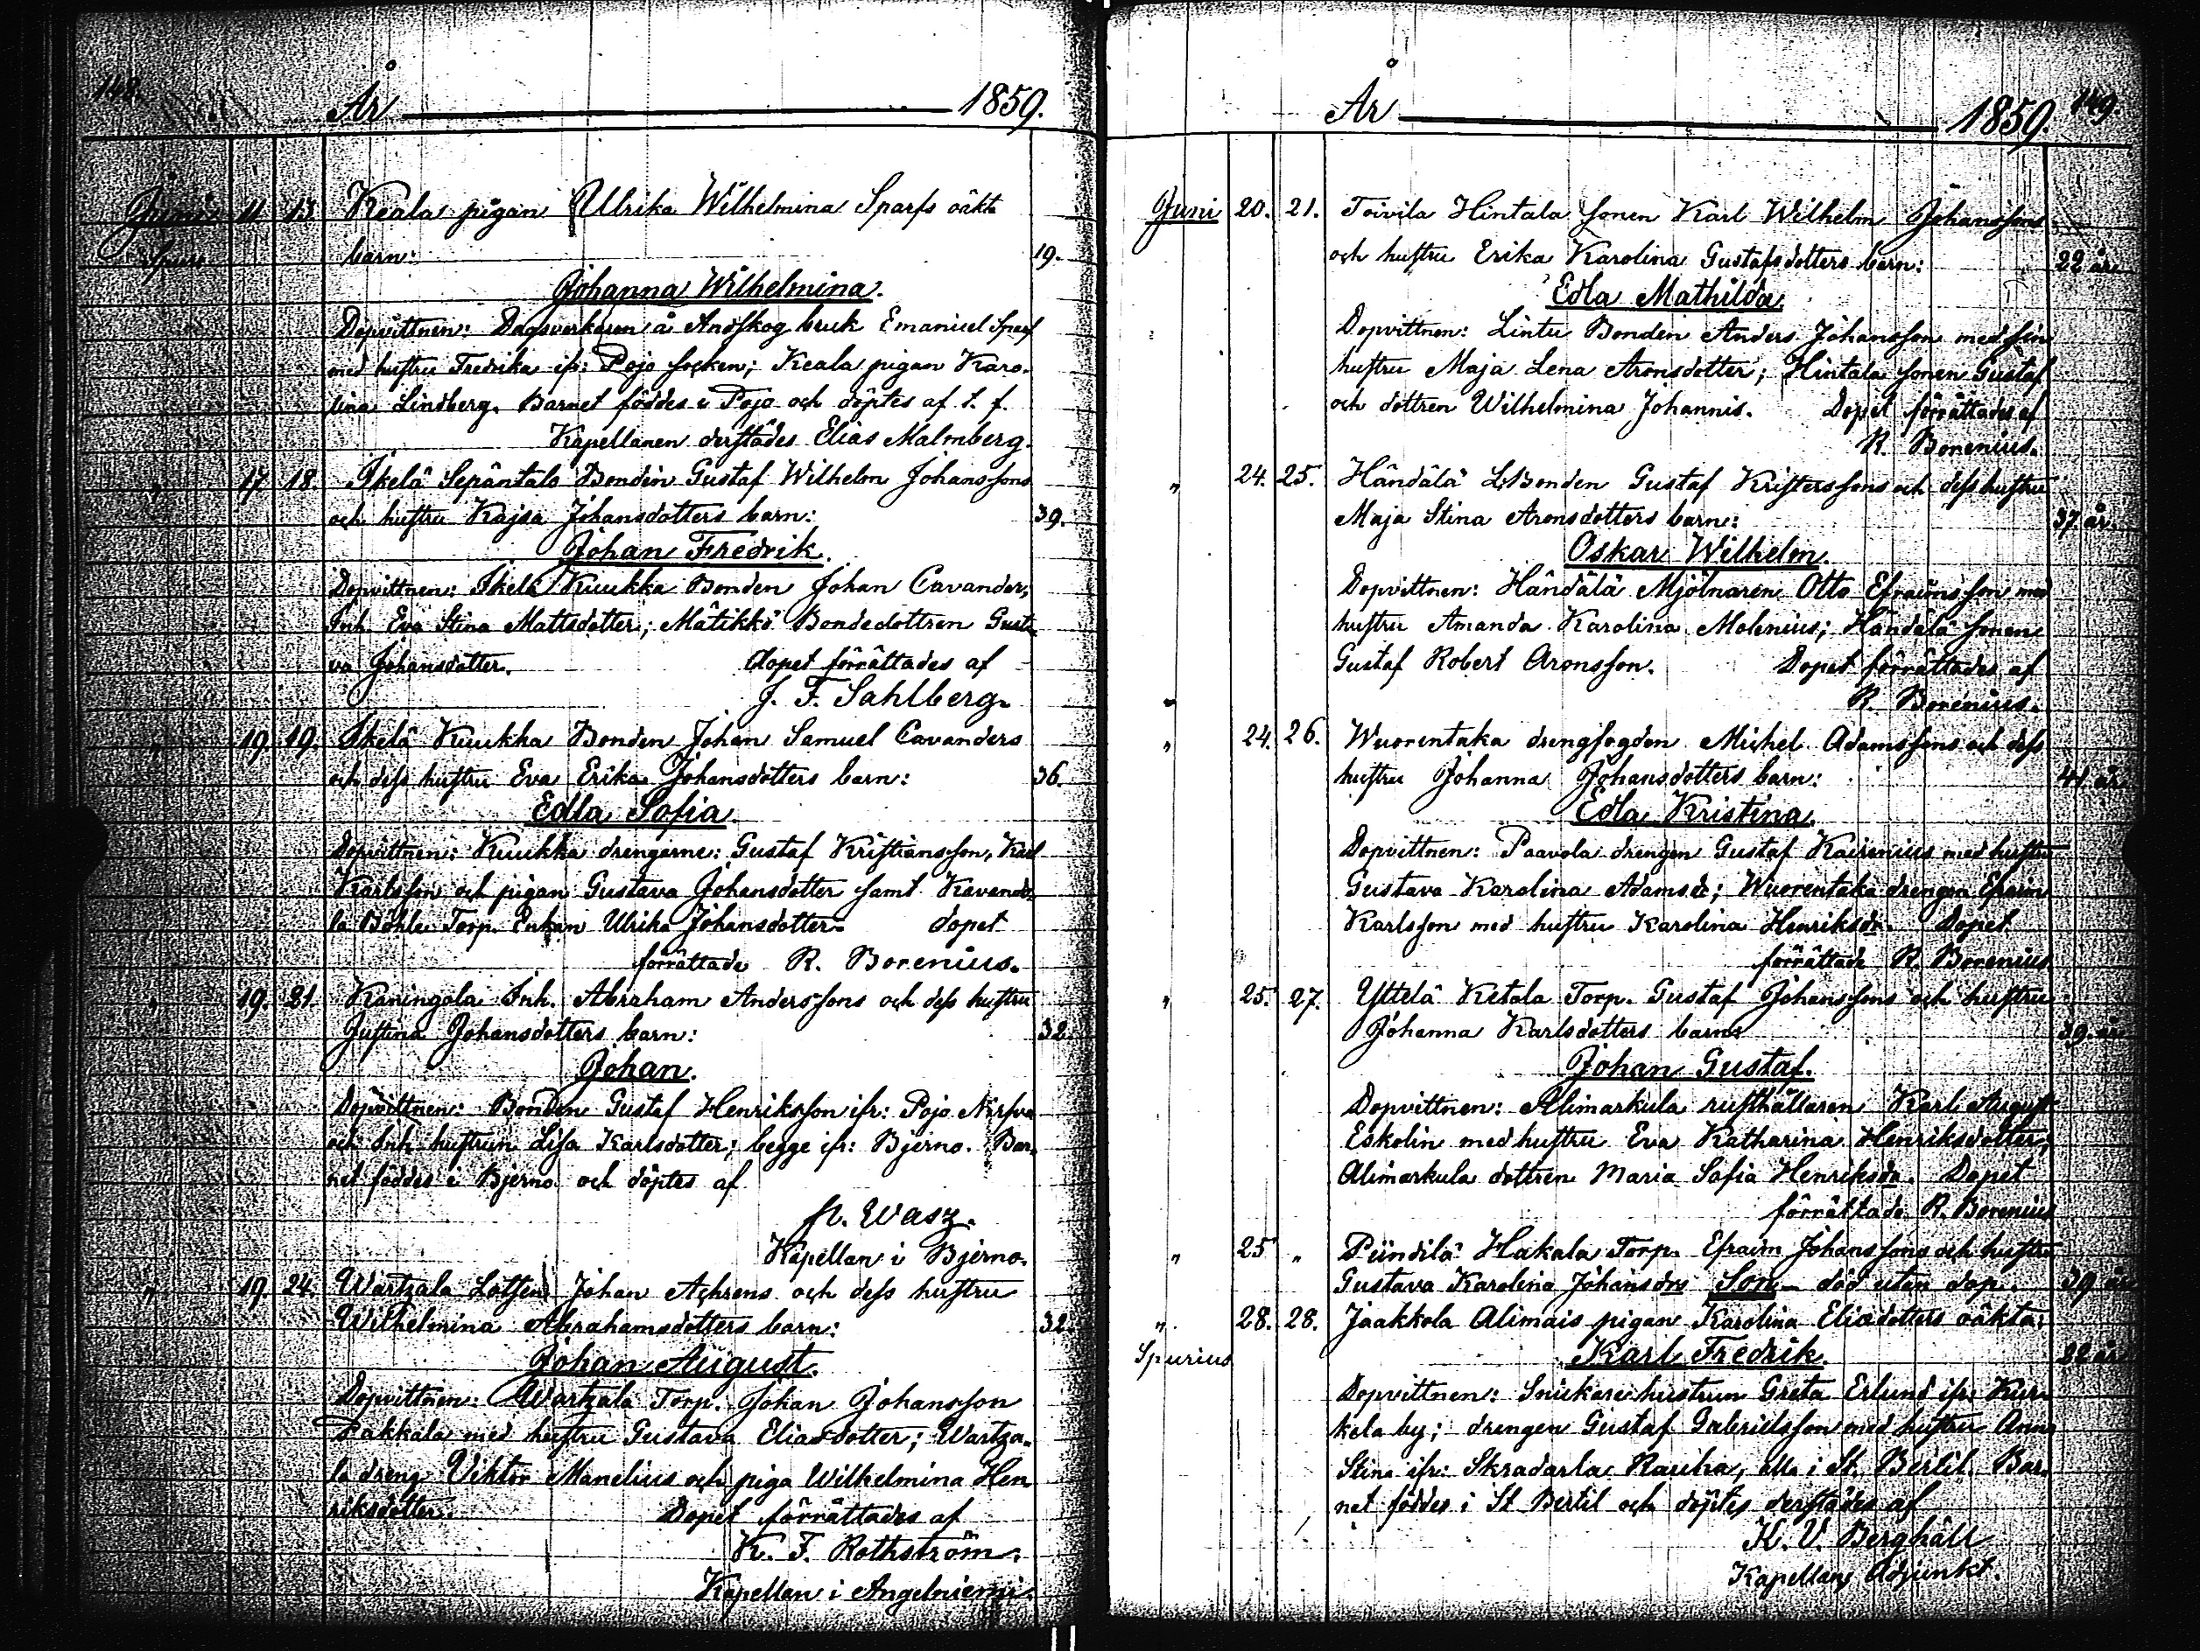 148.
År 1859.
Juni 11 13 Keala pigan Ulrika Wilhelmina Sparfs oäkta
Spur. barn: 19.
Johanna Wilhelmina.
Dopvittnen: Dagsverkaren å Antskog bruk Emanuel Sparf
med hustru Fredrika ifr: Pojo socken; Keala pigan Karo-
lina Lindberg. Barnet föddes i Pojo och döptes af t. f.
Kapellanen derstädes Elias Malmberg.
" 17 18 Ikelä Sepäntalo Bonden Gustaf Wilhelm Johanssons
och hustru Kajsa Johansdotters barn: 39.
Johan Fredrik.
Dopvittnen: Ikelä Kuukka Bonden Johan Cavander,
Inh. Eva Stina Mattsdotter; Mätikkö Bondedottren Gusta-
va Johansdotter. dopet förrättades af
J. F. Sahlberg.
" 19. 19. Ikelä Kuukka Bonden Johan Samuel Cavanders
och dess hustru Eva Erika Johansdotters barn: 36.
Edla Sofia
Dopvittnen: Kuukka drengarne: Gustaf Kristiansson, Karl
Karlsson och pigan Gustava Johansdotter samt
la Böhle Torp. Enkan Ulrika Johansdotter. dopet
förrättade R. Borenius.
" 19. 21. Karingola Inh. Abraham Anderssons och dess hustru
Justina Johansdotters barn: 32.
Johan.
Dopvittnen: Bonden Gustaf Henriksson ifr: Pojo
och Inh. hustrun Lisa Karlsdotter; begge ifr: Bjerno. Bar-
net föddes i Bjerno och döptes af
A. Wasz.
Kapellan i Bjerno.
" 19. 24. Wartsala Lotsen Johan Achrens och dess hustru
Wilhelmina Abrahamsdotters barn: 32.
Johan August.
Dopvittnen: Wartsala Torp. Johan Johansson
Pakkala med hustru Gustava Eliasdotter; Wartsa-
la dreng Viktor Manelius och piga Wilhelmina Hen-
riksdotter. Dopet förrättades af
K. F. Rothström.
Kapellan i Angelniemi.
149.
År 1859.
Juni 20. 21. Toivila Hintala sonen Karl Wilhelm Johanssons
och hustru Erika Karolina Gustafsdotters barn: 22 år
Edla Mathilda.
Dopvittnen: Lintu Bonden Anders Johansson med sin
hustru Maja Lena Aronsdotter; Hintala sonen Gustaf
och dottren Wilhelmina Johannis. Dopet förrättades af
R. Borenius.
" 24. 25. Händälä Bonden Gustaf Kristerssons och dess hustru
Maja Stina Aronsdotters barn: 37 år.
Oskar Wilhelm.
Dopvittnen: Händälä Mjölnaren Otto Efraimsson med
hustru Amanda Karolina Molenius; Händälä sonen
Gustaf Robert Aronsson. Dopet förrättades af
R. Borenius.
" 24. 26. Wuorentaka drengfogden Michel Adamssons och dess
hustru Johanna Johansdotters barn: 41 år
Edla Kristina.
Dopvittnen: Paavola drengen Gustaf Kairenius med hustru
Gustava Karolina Adamsd:; Wuorentaka drengen Efraim
Karlsson med hustru Karolina Henriksdr. Dopet
förrättade R. Borenius.
" 25. 27. Yttelä Ketola Torp. Gustaf Johanssons och hustru
Johanna Karlsdotters barn: 39. år
Johan Gustaf.
Dopvittnen: Alimarkula rusthållaren Karl August
Eskolin med hustru Eva Katharina Henriksdotter;
Alimarkula dottren Maria Sofia Henriksdr. Dopet
förrättade R. Borenius
" 25 " Piindilä Hakala Torp. Efraim Johanssons och hustru
Gustava Karolina Johansdrs Son – död utan dop. 39 år
" 28. 28. Jaakkola Alimais pigan Karolina Eliadotters oäkta:
Spurius Karl Fredrik. 22 år
Dopvittnen: Snickarehustrun Greta Erlund ifr: Kur-
kela by; drengen Gustaf Gabrielsson med hustru Anna
Stina ifr: Skradarla Rauha, alla i St. Bertil. Bar-
net föddes i St Bertil och döptes derstädes af
K. V. Berghäll
Kapellans Adjunkt.